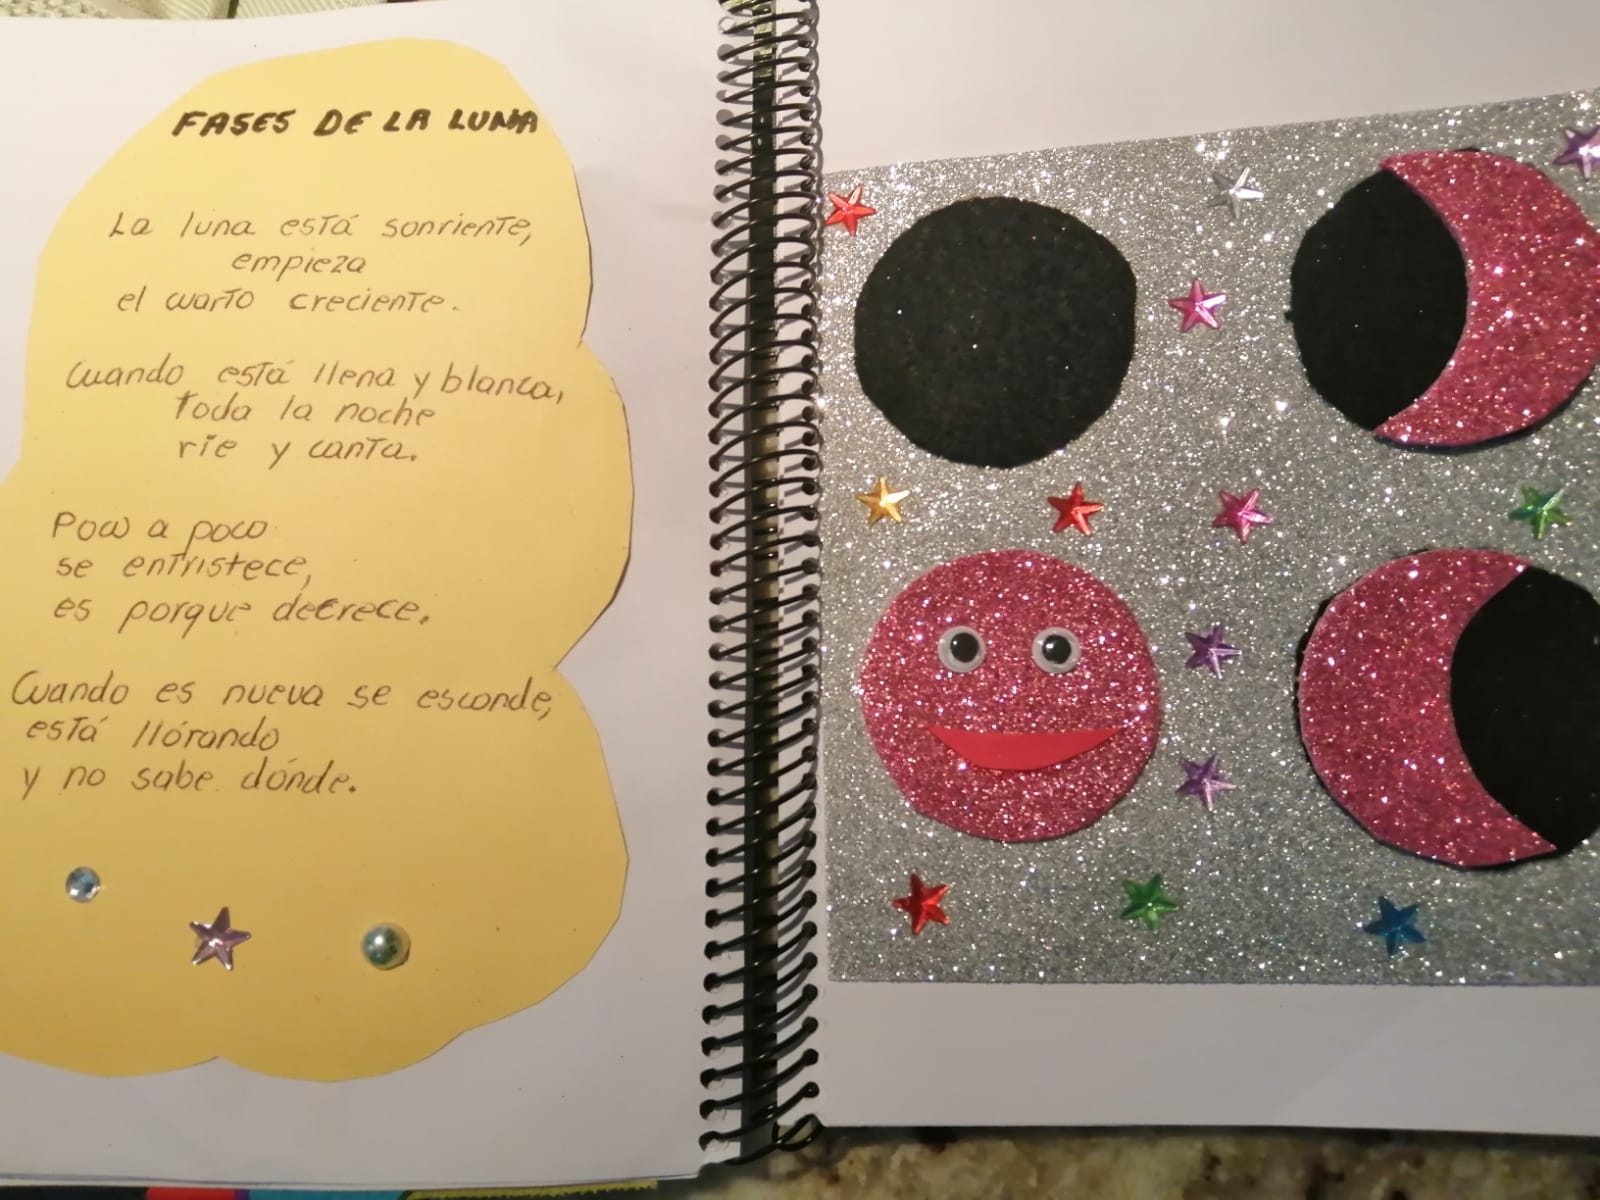 FASES DE LA LUNA
La luna está sonriente,
empieza
el cuarto creciente.
Cuando está llena y blanca,
toda la noche
ríe y canta.
Poco a poco
se entristece,
es porque decrece.
Cuando es nueva se esconde,
está llórando
y no sabe dónde.